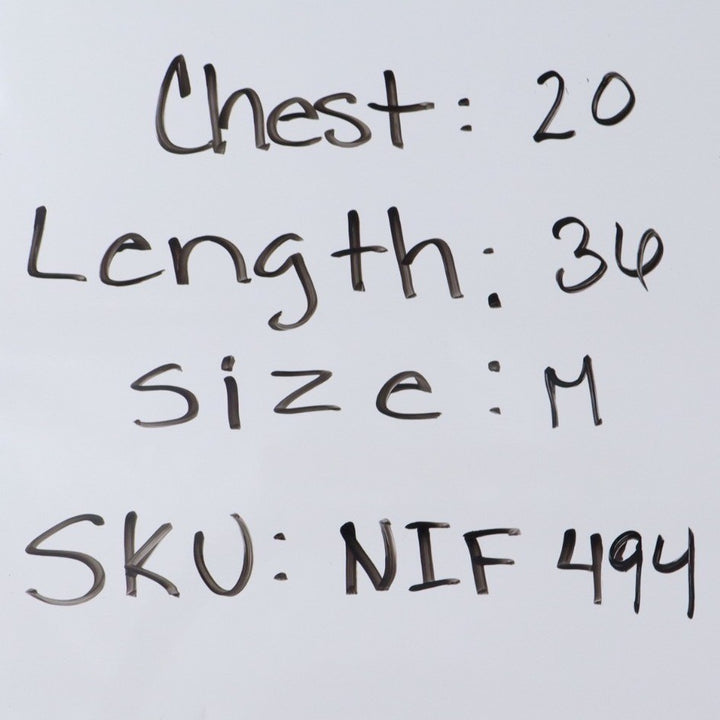 Chest: 20
Length: 36
Size: M
SKU: NIF 494